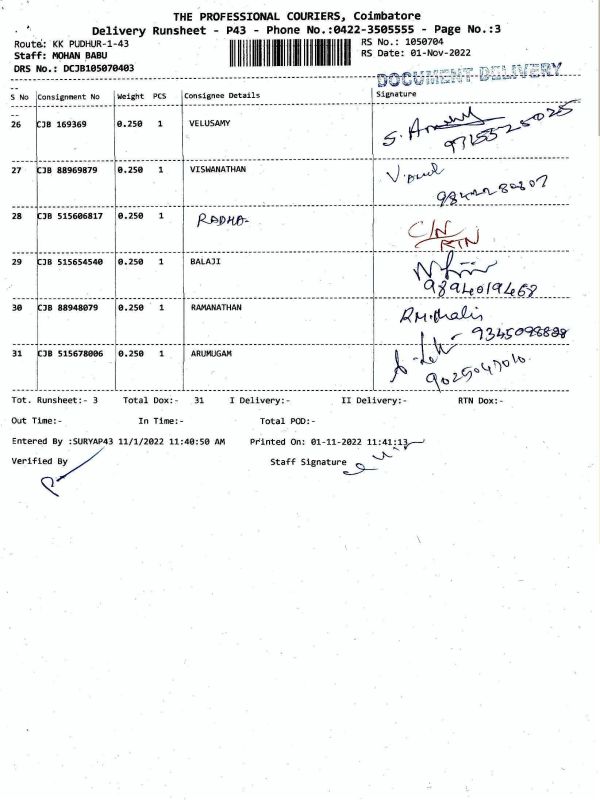 THE PROFESSIONAL COURIERS, Coimbatore
Delivery Runsheet - P43 - Phone No.:0422-3505555 - Page No.:3
Route: KK PUDHUR-1-43 RS No.: 1050704
Staff: MOHAN BABU RS Date: 01-Nov-2022
DRS No.: DCJB105070403
DOCUMENT DELIVERY
S No Consignment No Weight PCS Consignee Details Signature
26 CJB 169369 0.250 1 VELUSAMY
27 CJB 88969879 0.250 1 VISWANATHAN
28 CJB 515606817 0.250 1 RADHA- C/N
RTN
29 CJB 515654540 0.250 1 BALAJI
9894019468
30 CJB 88948079 0.250 1 RAMANATHAN
31 CJB 515678006 0.250 1 ARUMUGAM
Tot. Runsheet:- 3 Total Dox:- 31 I Delivery:- II Delivery:- RTN Dox:-
Out Time:- In Time:- Total POD:-
Entered By :SURYAP43 11/1/2022 11:40:50 AM Printed On: 01-11-2022 11:41:13
Verified By Staff Signature